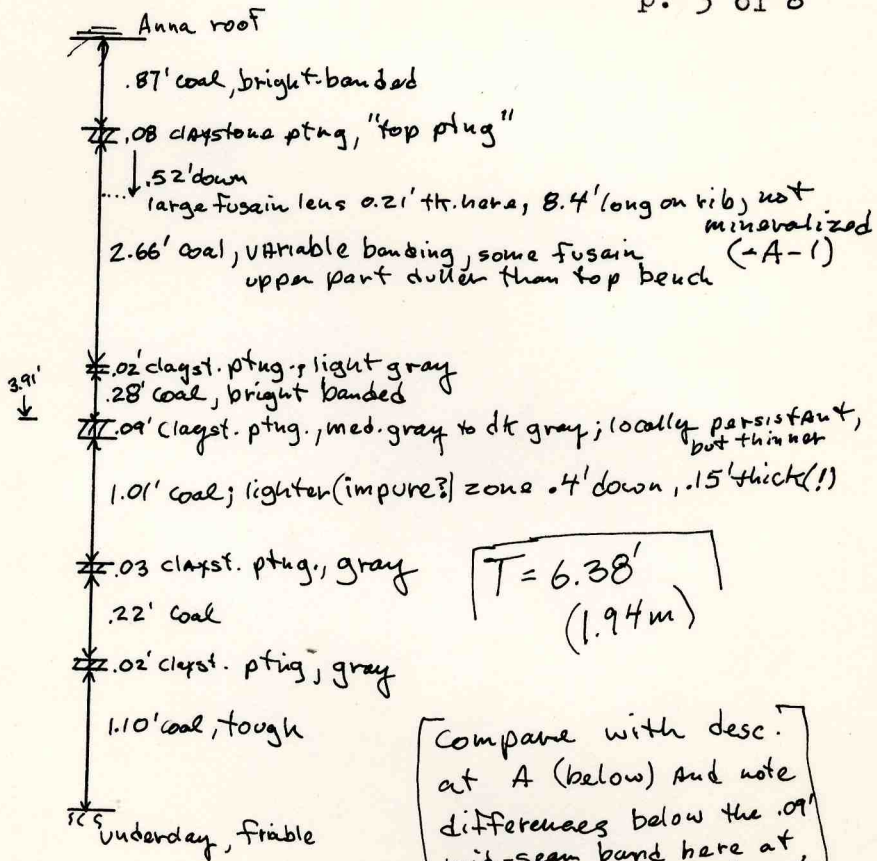 p. 5 of 8
Anna roof
.87' coal, bright-banded
.08 claystone ptng, "top ptng"
.52' down
large fusain lens 0.21' tk. here, 8.4' long on rib, not
mineralized
(-A-1)
2.66' coal, variable banding, some fusain
upper part duller than top bench
.02' clayst. ptng., light gray
3.91'
.28' coal, bright banded
.09' clayst. ptng., med. gray to dk gray; locally persistant,
but thinner
1.01' coal; lighter (impure?) zone .4' down, .15' thick (!)
.03 clayst. ptng., gray
T = 6.38'
(1.94 m)
.22' coal
.02' clayst. ptng, gray
1.10' coal, tough
Compare with desc.
at A (below) and note
differences below the .09'
band here at
underclay, friable